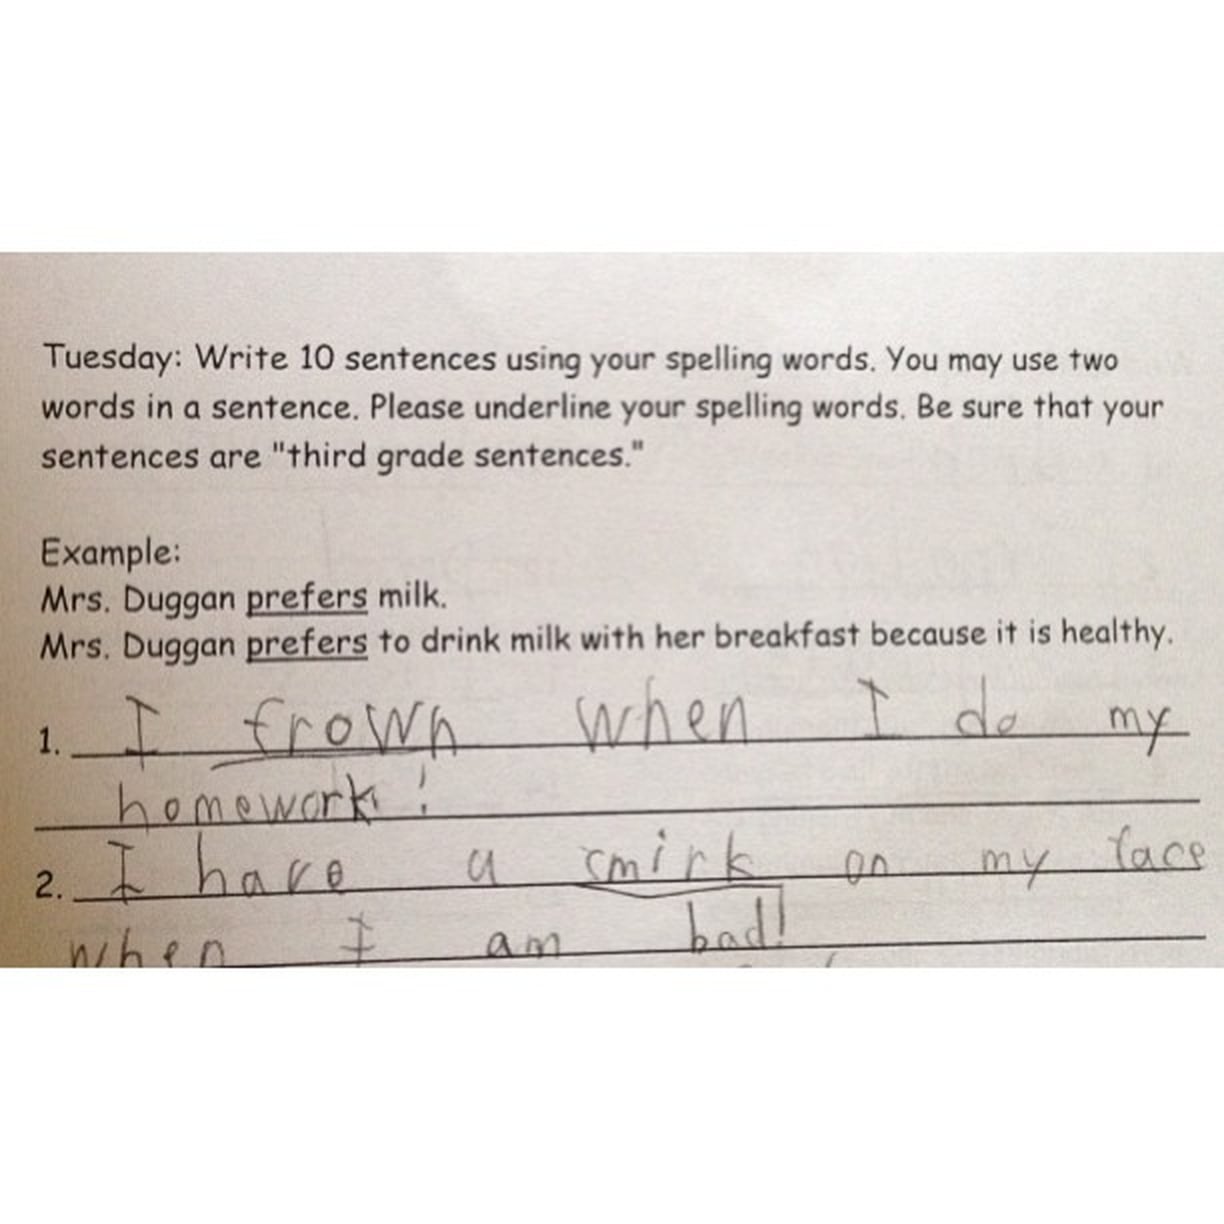 Tuesday: Write 10 sentences using your spelling words. You may use two
words in a sentence. Please underline your spelling words. Be sure that your
sentences are "third grade sentences."
Example:
Mrs. Duggan prefers milk.
Mrs. Duggan prefers to drink milk with her breakfast because it is healthy.
1. I frown when I do my
homework!
2. I have a smirk on my face
when I am bad!